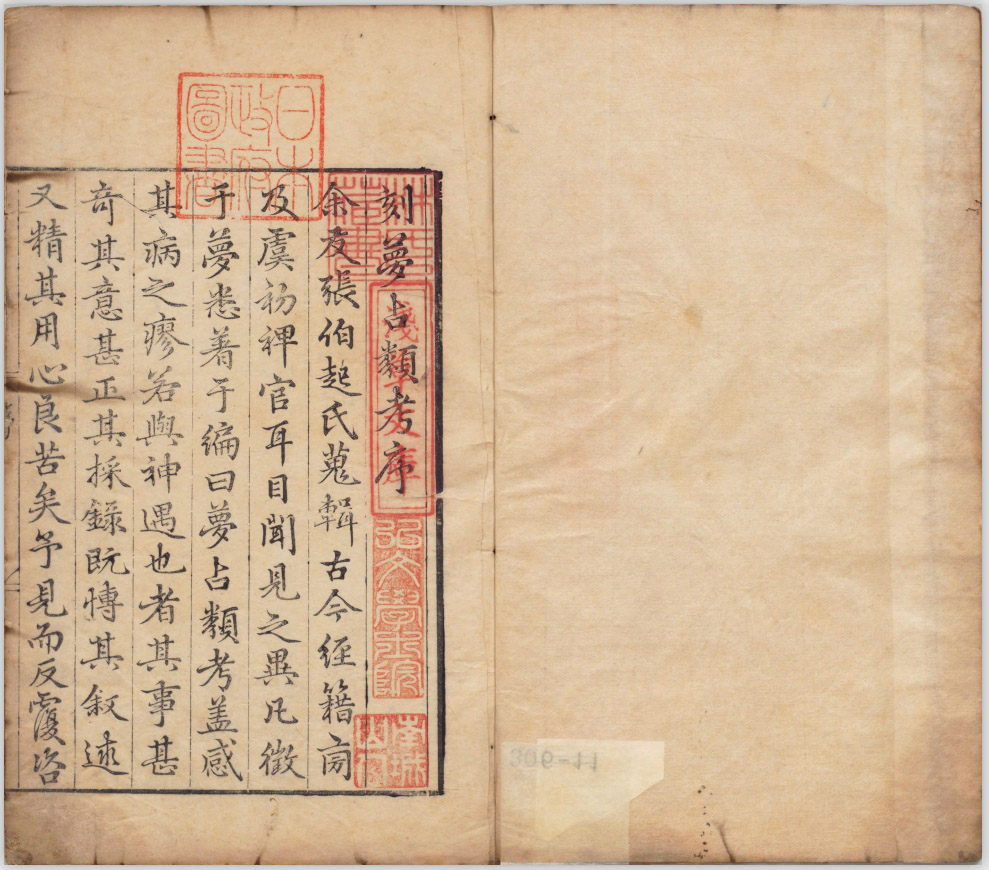 刻夢占類考序
余友張伯起氏蒐輯古今經籍
及虞初稗官耳目聞見之異凡徵
于夢悉著于編曰夢占類考盖感
其病之瘳若與神遇也者其事甚
奇其意甚正其採錄既愽其叙述
又精其用心良苦矣予見而反覆咨
日本
政府
圖書
淺草文庫